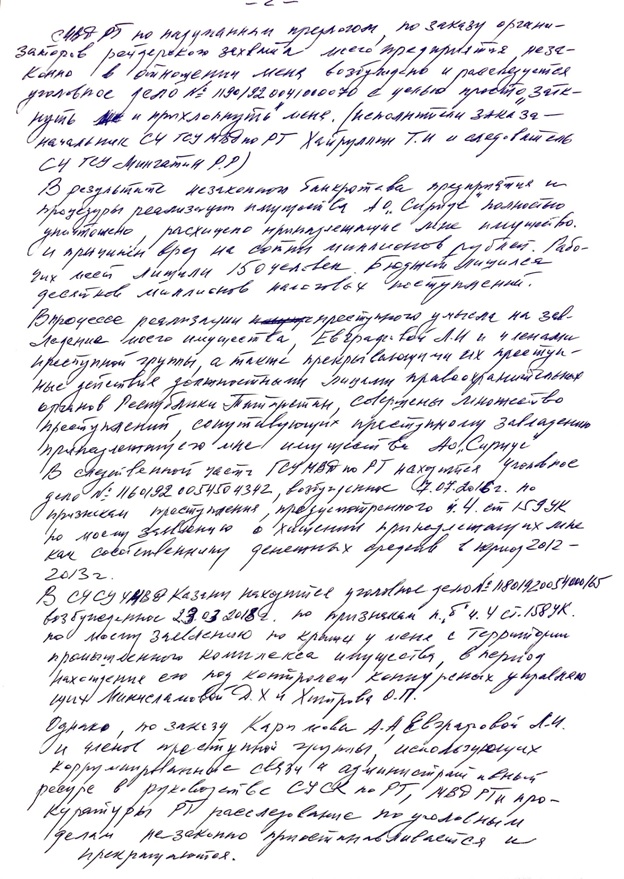 - 2 -
СМВД РТ по надуманным предлогом, по заказу органи-
заторов рейдерского захвата моего предприятия, неза-
конно в отношении меня возбуждено и расследуется
уголовное дело № 11901920041000070 с целью просто „затк-
нуть и прихлопнуть" меня. (исполнители заказа –
начальник СЧ ГСУ МВД по РТ Хайруллин Т.И и следователь
СЧ ГСУ Мингатин Р.Р)
В результате незаконного банкротства предприятия и
процедуры реализации имущества АО „Сириус" полностью
уничтожено, расхищено принадлежащие мне имущество.
и причинён вред на сотни миллионов рублей. Рабо-
чих мест лишили 150 человек. Бюджет лишился
десятков миллионов налоговых поступлений.
В процессе реализации преступного умысла на зав-
ладение моего имущества, Евграфовой Л.И и членами
преступной группы, а также прекрывающими их преступ-
ные действия должностными лицами правоохранительных
органов Республики Татарстан, совершены множество
преступлений, сопутствующих преступному завладению
принадлежащего мне имущества АО „Сириус"
В следственной части ГСУ МВД по РТ находится уголовное
дело № 11601920054504342, возбужденное 7.07.2016г. по
признакам преступления, предусмотренного ч.4. ст 159 УК
по моему заявлению о хищении принадлежащих мне
как собственнику денежных средств в период 2012 –
2013 г.
В СЧ СУ УМВД Казани находится уголовное дело № 11801920054000165
возбужденное 23 03 2018г. по признакам п. „б" ч. 4 ст. 158 УК.
по моему заявлению по краже у меня с территории
промышленного комплекса имущества, в период
нахождения его под контролем конкурсных управляю
щих Минисламовой Д.Х и Хитрова О.П.
Однако, по заказу Каримова А.А Евграфовой Л.И.
и членов преступной группы, использующих
коррумпированные связи и административный
ресурс в руководстве СУ СК по РТ, МВД РТ и про-
куратуры РТ расследование по уголовным
делам незаконно приостанавливается и
прекращаются.